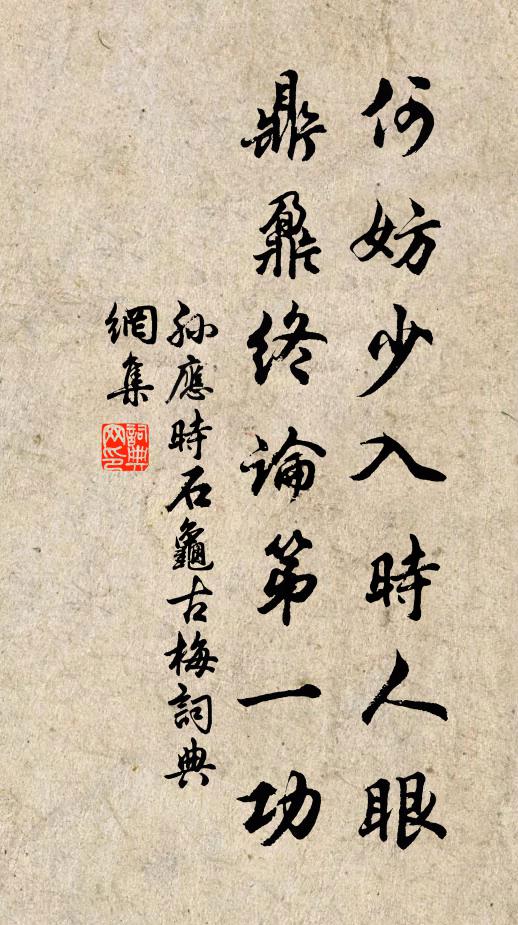 何妨少入時人眼
鼎鼐終論第一功
孫應時石龜古梅詞典
網集
詞典
網印